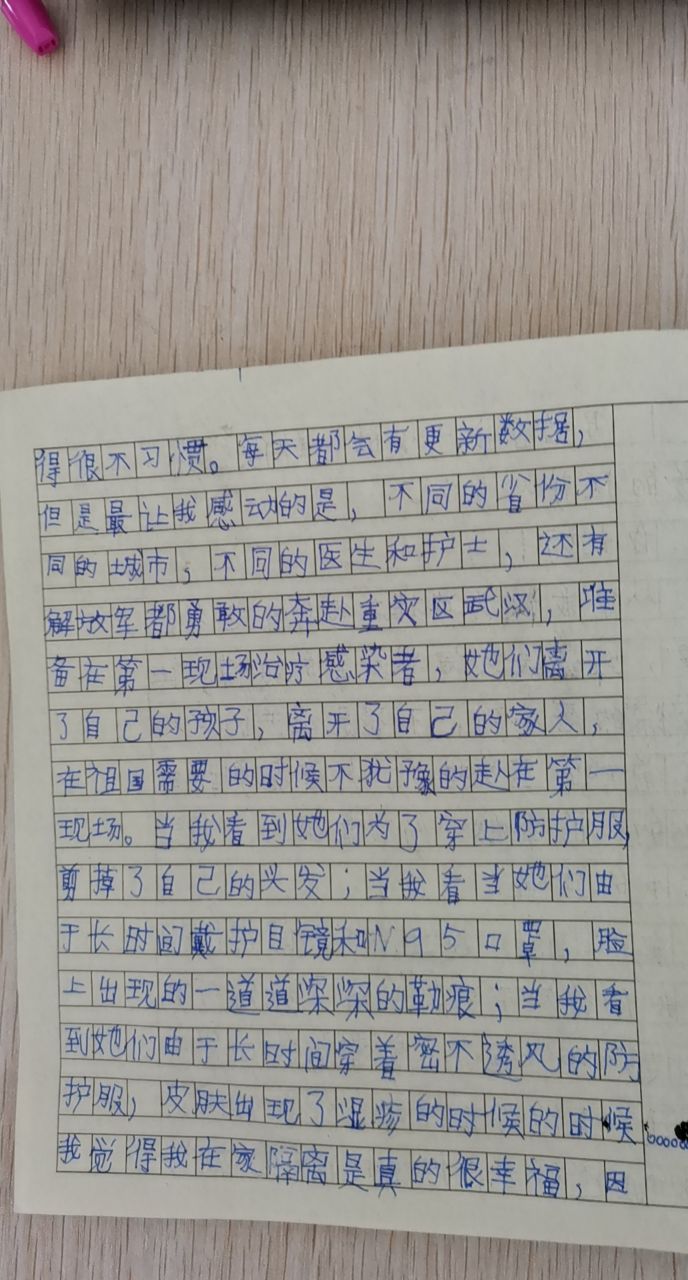 得很不习惯。每天都会有更新数据，
但是最让我感动的是，不同的省份不
同的城市，不同的医生和护士，还有
解放军都勇敢的奔赴重灾区武汉，准
备在第一现场治疗感染者，她们离开
了自己的孩子，离开了自己的家人，
在祖国需要的时候不犹豫的赴在第一
现场。当我看到她们为了穿上防护服，
剪掉了自己的头发；当我看当她们由
于长时间戴护目镜和N95口罩，脸
上出现的一道道深深的勒痕；当我看
到她们由于长时间穿着密不透风的防
护服，皮肤出现了湿疹的时候的时候
我觉得我在家隔离是真的很幸福，因